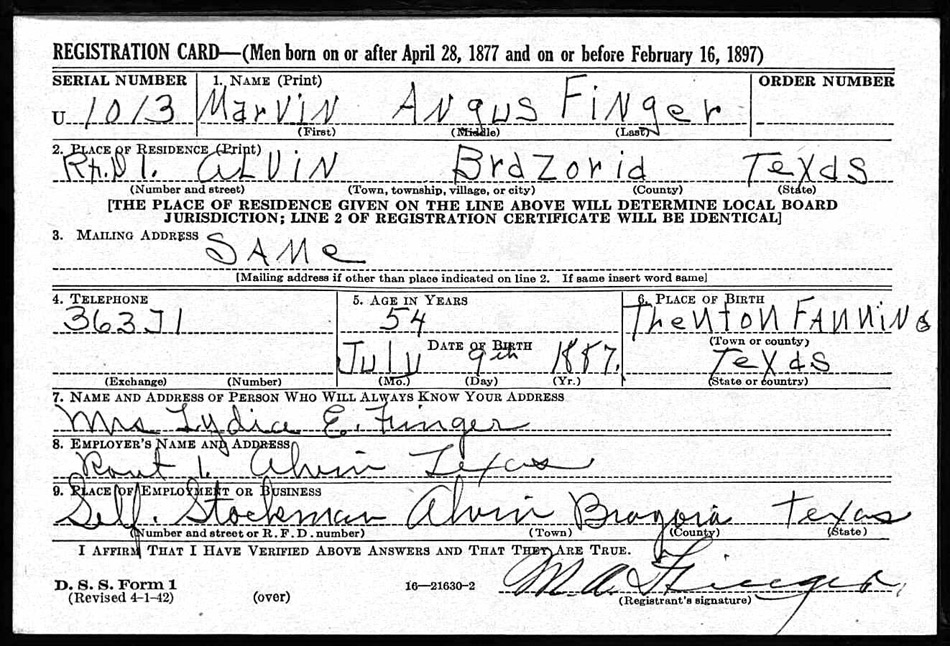 REGISTRATION CARD—(Men born on or after April 28, 1877 and on or before February 16, 1897)
SERIAL NUMBER 1. NAME (Print) ORDER NUMBER
U 1013 MARVIN ANgus FiNger
(First) (Middle) (Last)
2. PLACE OF RESIDENCE (Print)
Rt. D1. ALViN BrAzoriA TeXAS
(Number and street) (Town, township, village, or city) (County) (State)
[THE PLACE OF RESIDENCE GIVEN ON THE LINE ABOVE WILL DETERMINE LOCAL BOARD
JURISDICTION; LINE 2 OF REGISTRATION CERTIFICATE WILL BE IDENTICAL]
3. MAILING ADDRESS
SAMe
[Mailing address if other than place indicated on line 2. If same insert word same]
4. TELEPHONE 5. AGE IN YEARS 6. PLACE OF BIRTH
363J1 54 TheNToN FANNiN
DATE OF BIRTH (Town or county)
JuLy 9th 1887. TeXAS
(Exchange) (Number) (Mo.) (Day) (Yr.) (State or country)
7. NAME AND ADDRESS OF PERSON WHO WILL ALWAYS KNOW YOUR ADDRESS
Mrs Lydia E. Finger
8. EMPLOYER'S NAME AND ADDRESS
Rout 1. Alvin Texas
9. PLACE OF EMPLOYMENT OR BUSINESS
Self. Stockman Alvin Brazoria Texas
(Number and street or R. F. D. number) (Town) (County) (State)
I AFFIRM THAT I HAVE VERIFIED ABOVE ANSWERS AND THAT THEY ARE TRUE.
D. S. S. Form 1
(Revised 4-1-42) (over) 16—21630-2 M A Finger
(Registrant's signature)